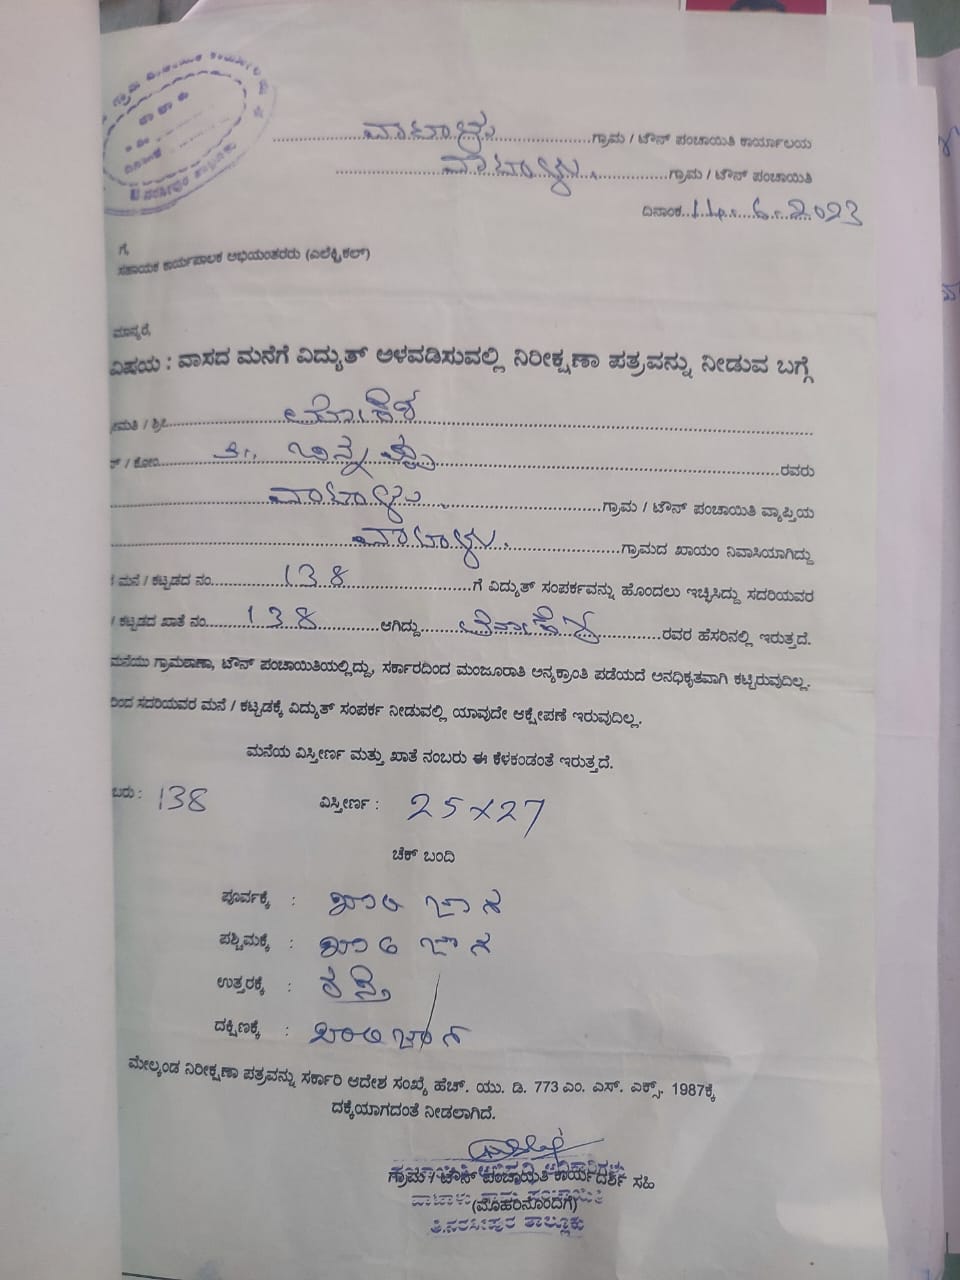 ವಾಟಾಳು ಗ್ರಾಮ / ಟೌನ್ ಪಂಚಾಯಿತಿ ಕಾರ್ಯಾಲಯ
ವಾಟಾಳು. ಗ್ರಾಮ / ಟೌನ್ ಪಂಚಾಯಿತಿ
ದಿನಾಂಕ 14. 6. 2023
ಗೆ,
ಸಹಾಯಕ ಕಾರ್ಯಪಾಲಕ ಅಭಿಯಂತರರು (ಎಲೆಕ್ಟ್ರಿಕಲ್)
ಮಾನ್ಯರೆ,
ವಿಷಯ : ವಾಸದ ಮನೆಗೆ ವಿದ್ಯುತ್ ಅಳವಡಿಸುವಲ್ಲಿ ನಿರೀಕ್ಷಣಾ ಪತ್ರವನ್ನು ನೀಡುವ ಬಗ್ಗೆ
ಮತಿ / ಶ್ರೀ ಮಹೇಶ
ಕೋಂ ರವರು
ವಾಟಾಳು. ಗ್ರಾಮ / ಟೌನ್ ಪಂಚಾಯಿತಿ ವ್ಯಾಪ್ತಿಯ
ವಾಟಾಳು. ಗ್ರಾಮದ ಖಾಯಂ ನಿವಾಸಿಯಾಗಿದ್ದು
ಮನೆ / ಕಟ್ಟಡದ ನಂ. 138 ಗೆ ವಿದ್ಯುತ್ ಸಂಪರ್ಕವನ್ನು ಹೊಂದಲು ಇಚ್ಛಿಸಿದ್ದು ಸದರಿಯವರ
/ ಕಟ್ಟಡದ ಖಾತೆ ನಂ. 138 ಆಗಿದ್ದು ಮಹೇಶ ರವರ ಹೆಸರಿನಲ್ಲಿ ಇರುತ್ತದೆ.
ಮನೆಯು ಗ್ರಾಮಠಾಣಾ, ಟೌನ್ ಪಂಚಾಯಿತಿಯಲ್ಲಿದ್ದು, ಸರ್ಕಾರದಿಂದ ಮಂಜೂರಾತಿ ಅನ್ಯಕ್ರಾಂತಿ ಪಡೆಯದೆ ಅನಧಿಕೃತವಾಗಿ ಕಟ್ಟಿರುವುದಿಲ್ಲ.
ದಿಂದ ಸದರಿಯವರ ಮನೆ / ಕಟ್ಟಡಕ್ಕೆ ವಿದ್ಯುತ್ ಸಂಪರ್ಕ ನೀಡುವಲ್ಲಿ ಯಾವುದೇ ಆಕ್ಷೇಪಣೆ ಇರುವುದಿಲ್ಲ.
ಮನೆಯ ವಿಸ್ತೀರ್ಣ ಮತ್ತು ಖಾತೆ ನಂಬರು ಈ ಕೆಳಕಂಡಂತೆ ಇರುತ್ತದೆ.
ಬರು : 138 ವಿಸ್ತೀರ್ಣ : 25 x 27
ಚೆಕ್ ಬಂದಿ
ಪೂರ್ವಕ್ಕೆ : ಖಾಲಿ ಜಾಗ
ಪಶ್ಚಿಮಕ್ಕೆ : ಖಾಲಿ ಜಾಗ
ಉತ್ತರಕ್ಕೆ : ರಸ್ತೆ
ದಕ್ಷಿಣಕ್ಕೆ : ಖಾಲಿ ಜಾಗ
ಮೇಲ್ಕಂಡ ನಿರೀಕ್ಷಣಾ ಪತ್ರವನ್ನು ಸರ್ಕಾರಿ ಆದೇಶ ಸಂಖ್ಯೆ ಹೆಚ್. ಯು. ಡಿ. 773 ಎಂ. ಎಸ್. ಎಕ್ಸ್. 1987ಕ್ಕೆ
ದಕ್ಕೆಯಾಗದಂತೆ ನೀಡಲಾಗಿದೆ.
ಗ್ರಾಮ / ಟೌನ್ ಪಂಚಾಯಿತಿ ಕಾರ್ಯದರ್ಶಿ ಸಹಿ
(ಮೊಹರಿನೊಂದಿಗೆ)
ತಿ.ನರಸೀಪುರ ತಾಲ್ಲೂಕು